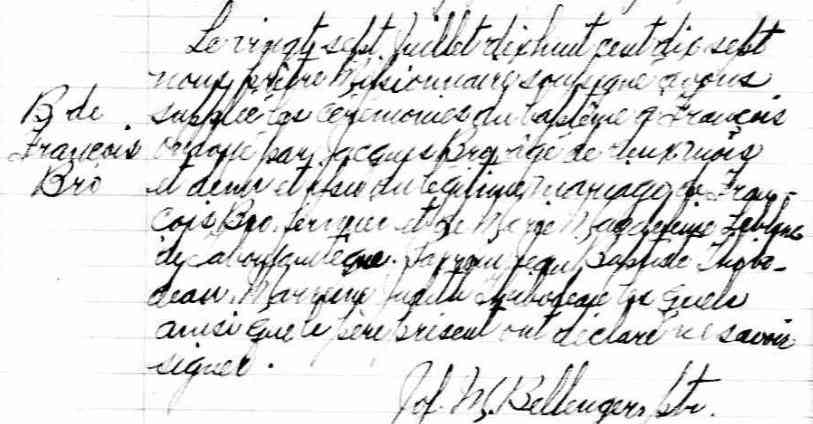 Le vingt sept Juillet dix huit cent dix sept
nous prêtre Missionnaire soussigné avons
B. de
suppléé les cérémonies du baptême à François
François
ondoyé par Jacques Bro âgé de deux mois
Bro
et demi et issu du légitime mariage de Fran-
çois Bro fermier et de Marie Magdeleine Leblanc
de Parrein Jean Baptiste Thibo-
deau Marreine Judith les quels
ainsi que le père présent ont déclaré ne savoir
signer.
Jos. M. Bellenger, ptr.